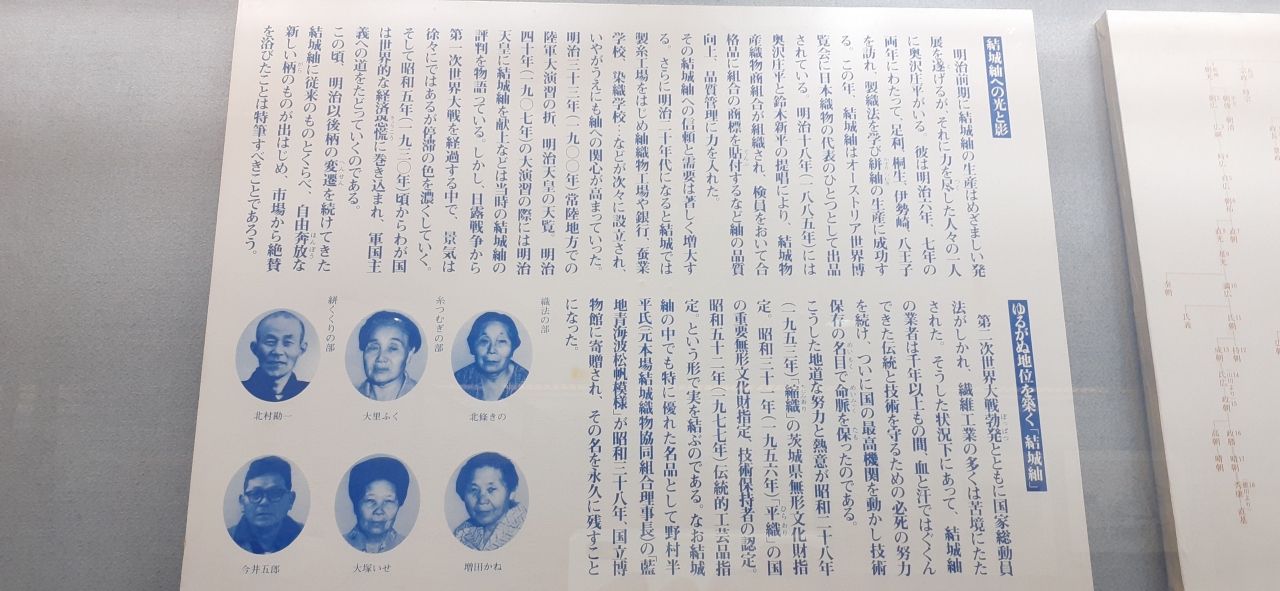 結城紬への光と影
明治前期に結城紬の生産はめざましい発
展を遂げるが、それに力を尽した人々の一人
に奥沢庄平がいる。彼は明治六年、七年の
両年にわたって、足利、桐生、伊勢崎、八王子
を訪れ、製織法を学び絣紬の生産に成功す
る。この年、結城紬はオーストリア世界博
覧会に日本織物の代表のひとつとして出品
されている。明治十八年(一八八五年)には
奥沢庄平と鈴木新平の提唱により、結城物
産織物商組合が組織され、検員をおいて合
格品に組合の商標を貼付するなど紬の品質
向上、品質管理に力を入れた。
その結城紬への信頼と需要は著しく増大す
る。さらに明治二十年代になると結城では
製糸工場をはじめ紬織物工場や銀行、蚕業
学校、染織学校…などが次々に設立され、
いやがうえにも紬への関心が高まっていった。
明治三十三年(一九〇〇年)常陸地方での
陸軍大演習の折、明治天皇の天覧、明治
四十年(一九〇七年)の大演習の際には明治
天皇に結城紬を献上などは当時の結城紬の
評判を物語っている。しかし、日露戦争から
第一次世界大戦を経過する中で、景気は
徐々にではあるが停滞の色を濃くしていく。
そして昭和五年(一九三〇年)頃からわが国
は世界的な経済恐慌に巻き込まれ、軍国主
義への道をたどっていくのである。
この頃、明治以後柄の変遷を続けてきた
結城紬に従来のものとくらべ、自由奔放な
新しい柄のものが出はじめ、市場から絶賛
を浴びたことは特筆すべきことであろう。
ゆるがぬ地位を築く「結城紬」
第二次世界大戦勃発とともに国家総動員
法がしかれ、繊維工業の多くは苦境にたた
された。そうした状況下にあって、結城紬
の業者は千年以上もの間、血と汗ではぐくん
できた伝統と技術を守るための必死の努力
を続け、ついに国の最高機関を動かし技術
保存の名目で命脈を保ったのである。
こうした地道な努力と熱意が昭和二十八年
(一九五三年)「縮織」の茨城県無形文化財指
定。昭和三十一年(一九五六年)「平織」の国
の重要無形文化財指定、技術保持者の認定。
昭和五十二年(一九七七年)伝統的工芸品指
定。という形で実を結ぶのである。なお結城
紬の中でも特に優れた名品として野村半
平氏(元本場結城織物協同組合理事長)の「藍
地青海波松帆模様」が昭和三十八年、国立博
物館に寄贈され、その名を永久に残すこと
になった。
織法の部
北條きの
増田かね
糸つむぎの部
大里ふく
大塚いせ
絣くくりの部
北村勘一
今井五郎